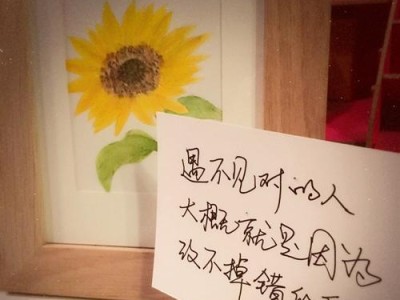 遇不见对的人
大概就是因为
改不掉错的